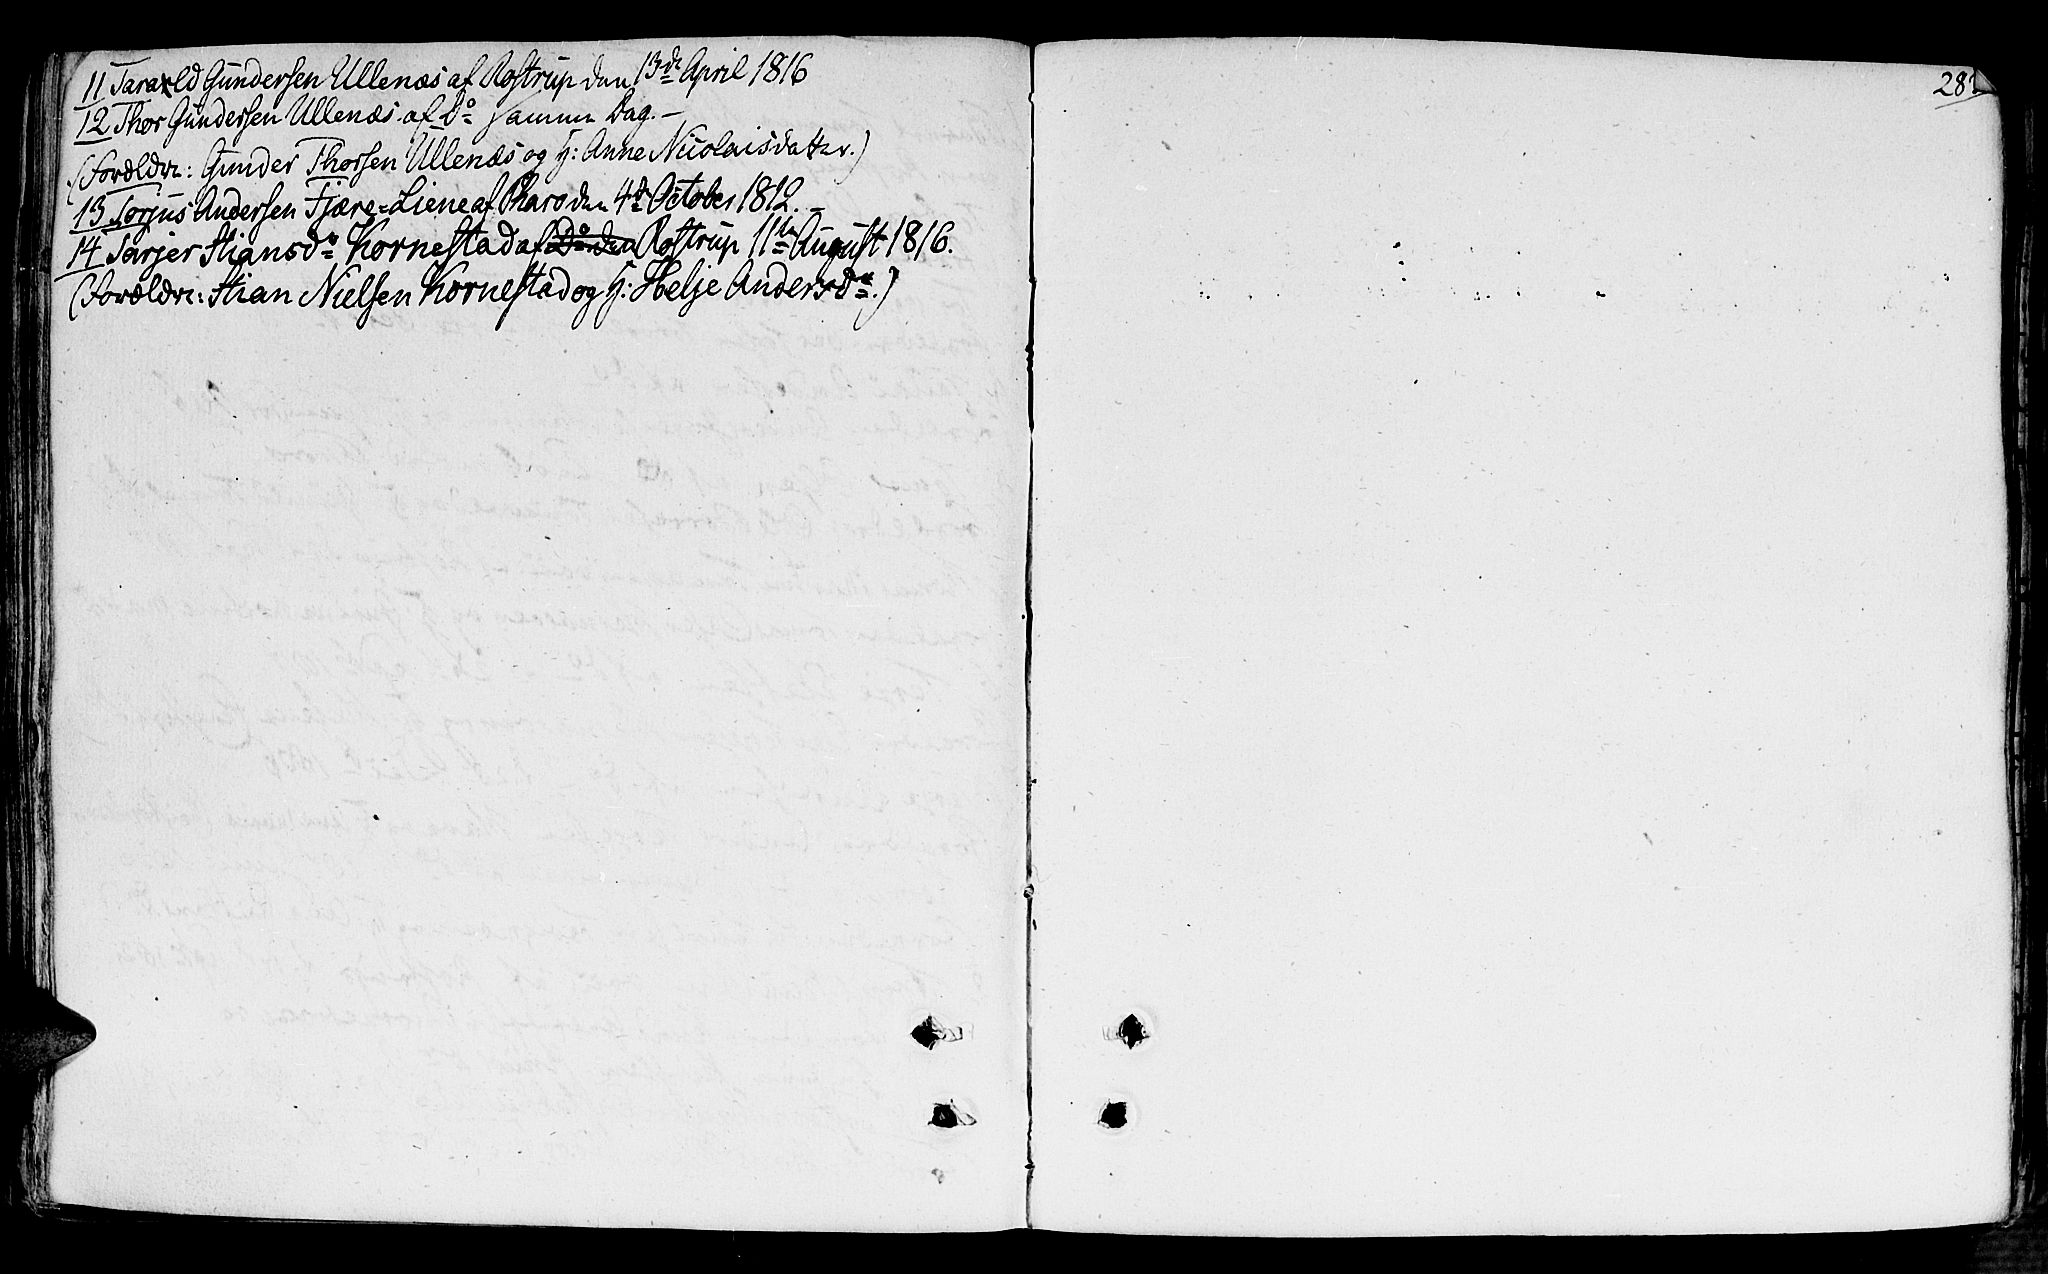 11 Tarald Gundersen Ullenæs af Rostrup den 13de April 1816
12 Thor Gundersen Ullenæs af Do samme Dag. –
(Forældre: Gunder Thorsen Ullenæs og H: Anne Nicolaisdatter.)
13 Torjus Andersen Fjære=Liene af Tharo den 4de October 1812. –
14 Tarjer Stiansdr Kornestad af Do den Rostrup 11te August 1816.
(Forældre: Stian Nielsen Kornestad og H: Helje Andersdr.)
281